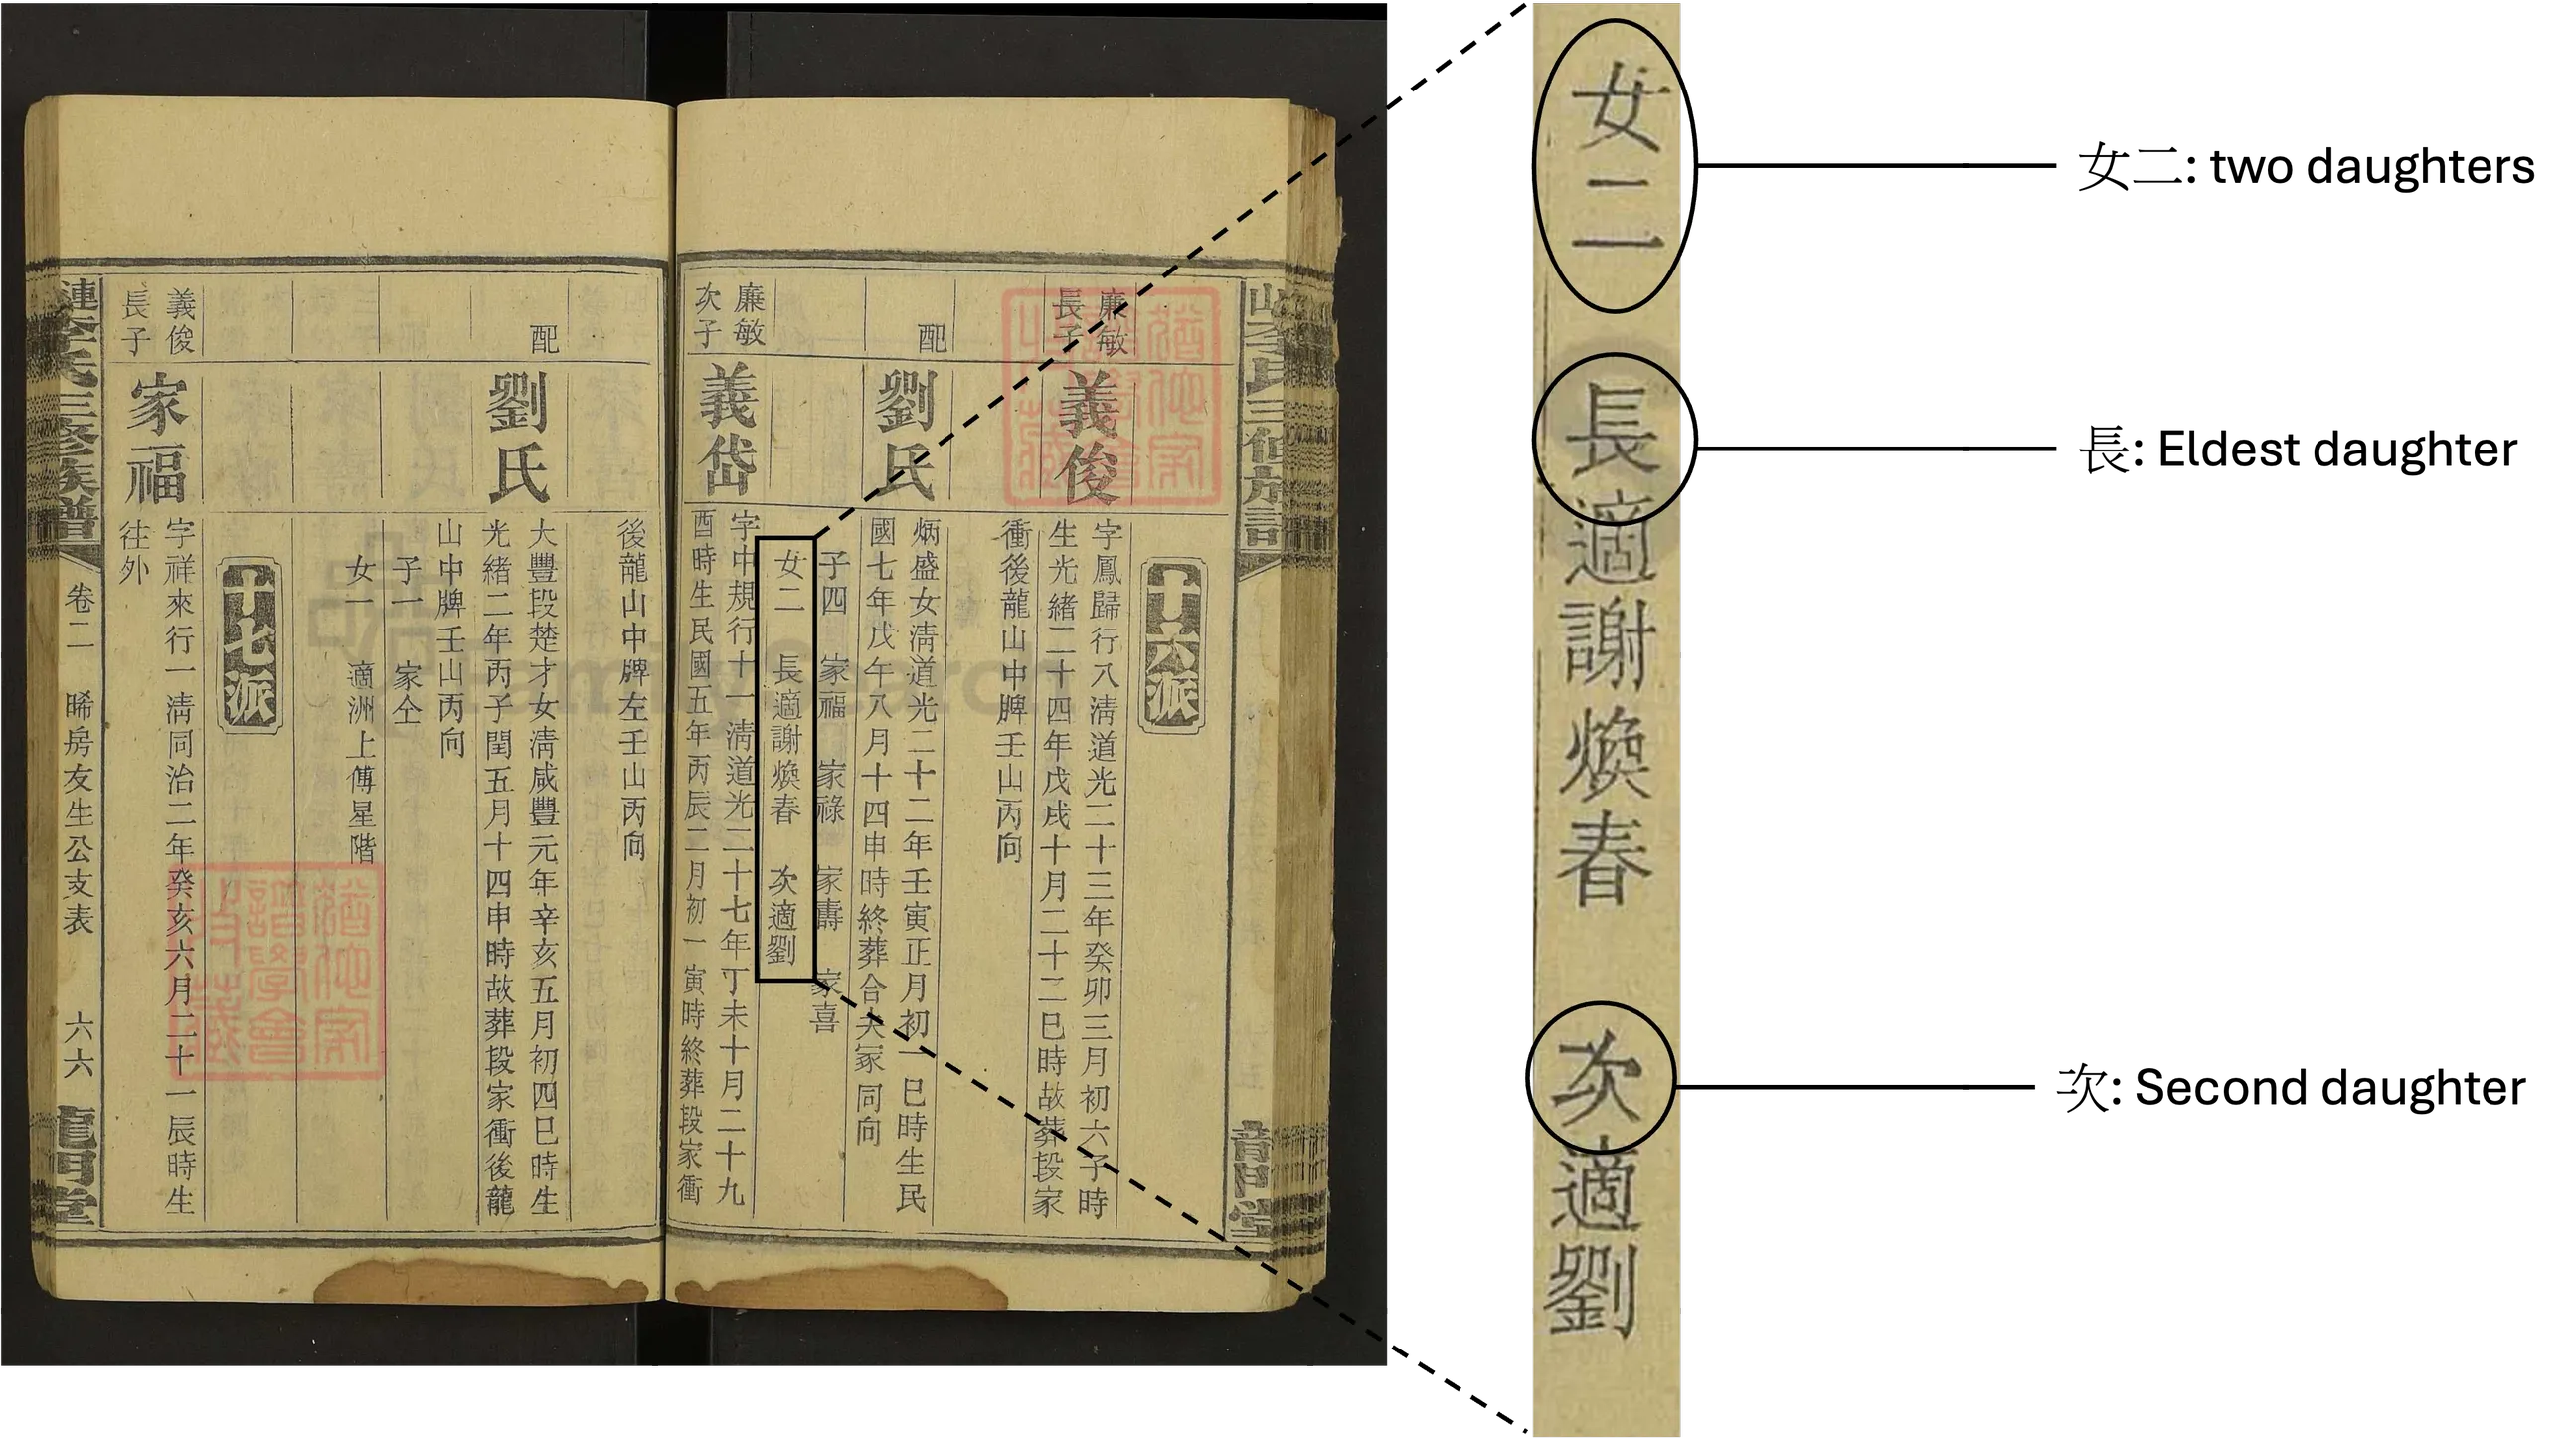 連李氏三修族譜
卷二 晞房友生公支表 六六
龍門堂
廉敏
長子
義俊
配
劉氏
廉敏
次子
義岱
十六派
字鳳歸行八淸道光二十三年癸卯三月初六子時
生光緒二十四年戊戌十月二十二巳時故葬段家
衝後龍山中牌壬山丙向
炳盛女淸道光二十二年壬寅正月初一巳時生民
國七年戊午八月十四申時終葬合夫冢同向
子四 家福 家祿 家壽 家喜
女二 長適謝煥春 次適劉
字中規行十一淸道光二十七年丁未十月二十九
酉時生民國五年丙辰二月初一寅時終葬段家衝
配
劉氏
義俊
長子
家福
後龍山中牌左壬山丙向
大豐段楚才女淸咸豐元年辛亥五月初四巳時生
光緒二年丙子閏五月十四申時故葬段家衝後龍
山中牌壬山丙向
子一 家仝
女一 適洲上傅星階
十七派
字祥來行一淸同治二年癸亥六月二十一辰時生
往外
女二
長適謝煥春
次適劉
女二: two daughters
長: Eldest daughter
次: Second daughter